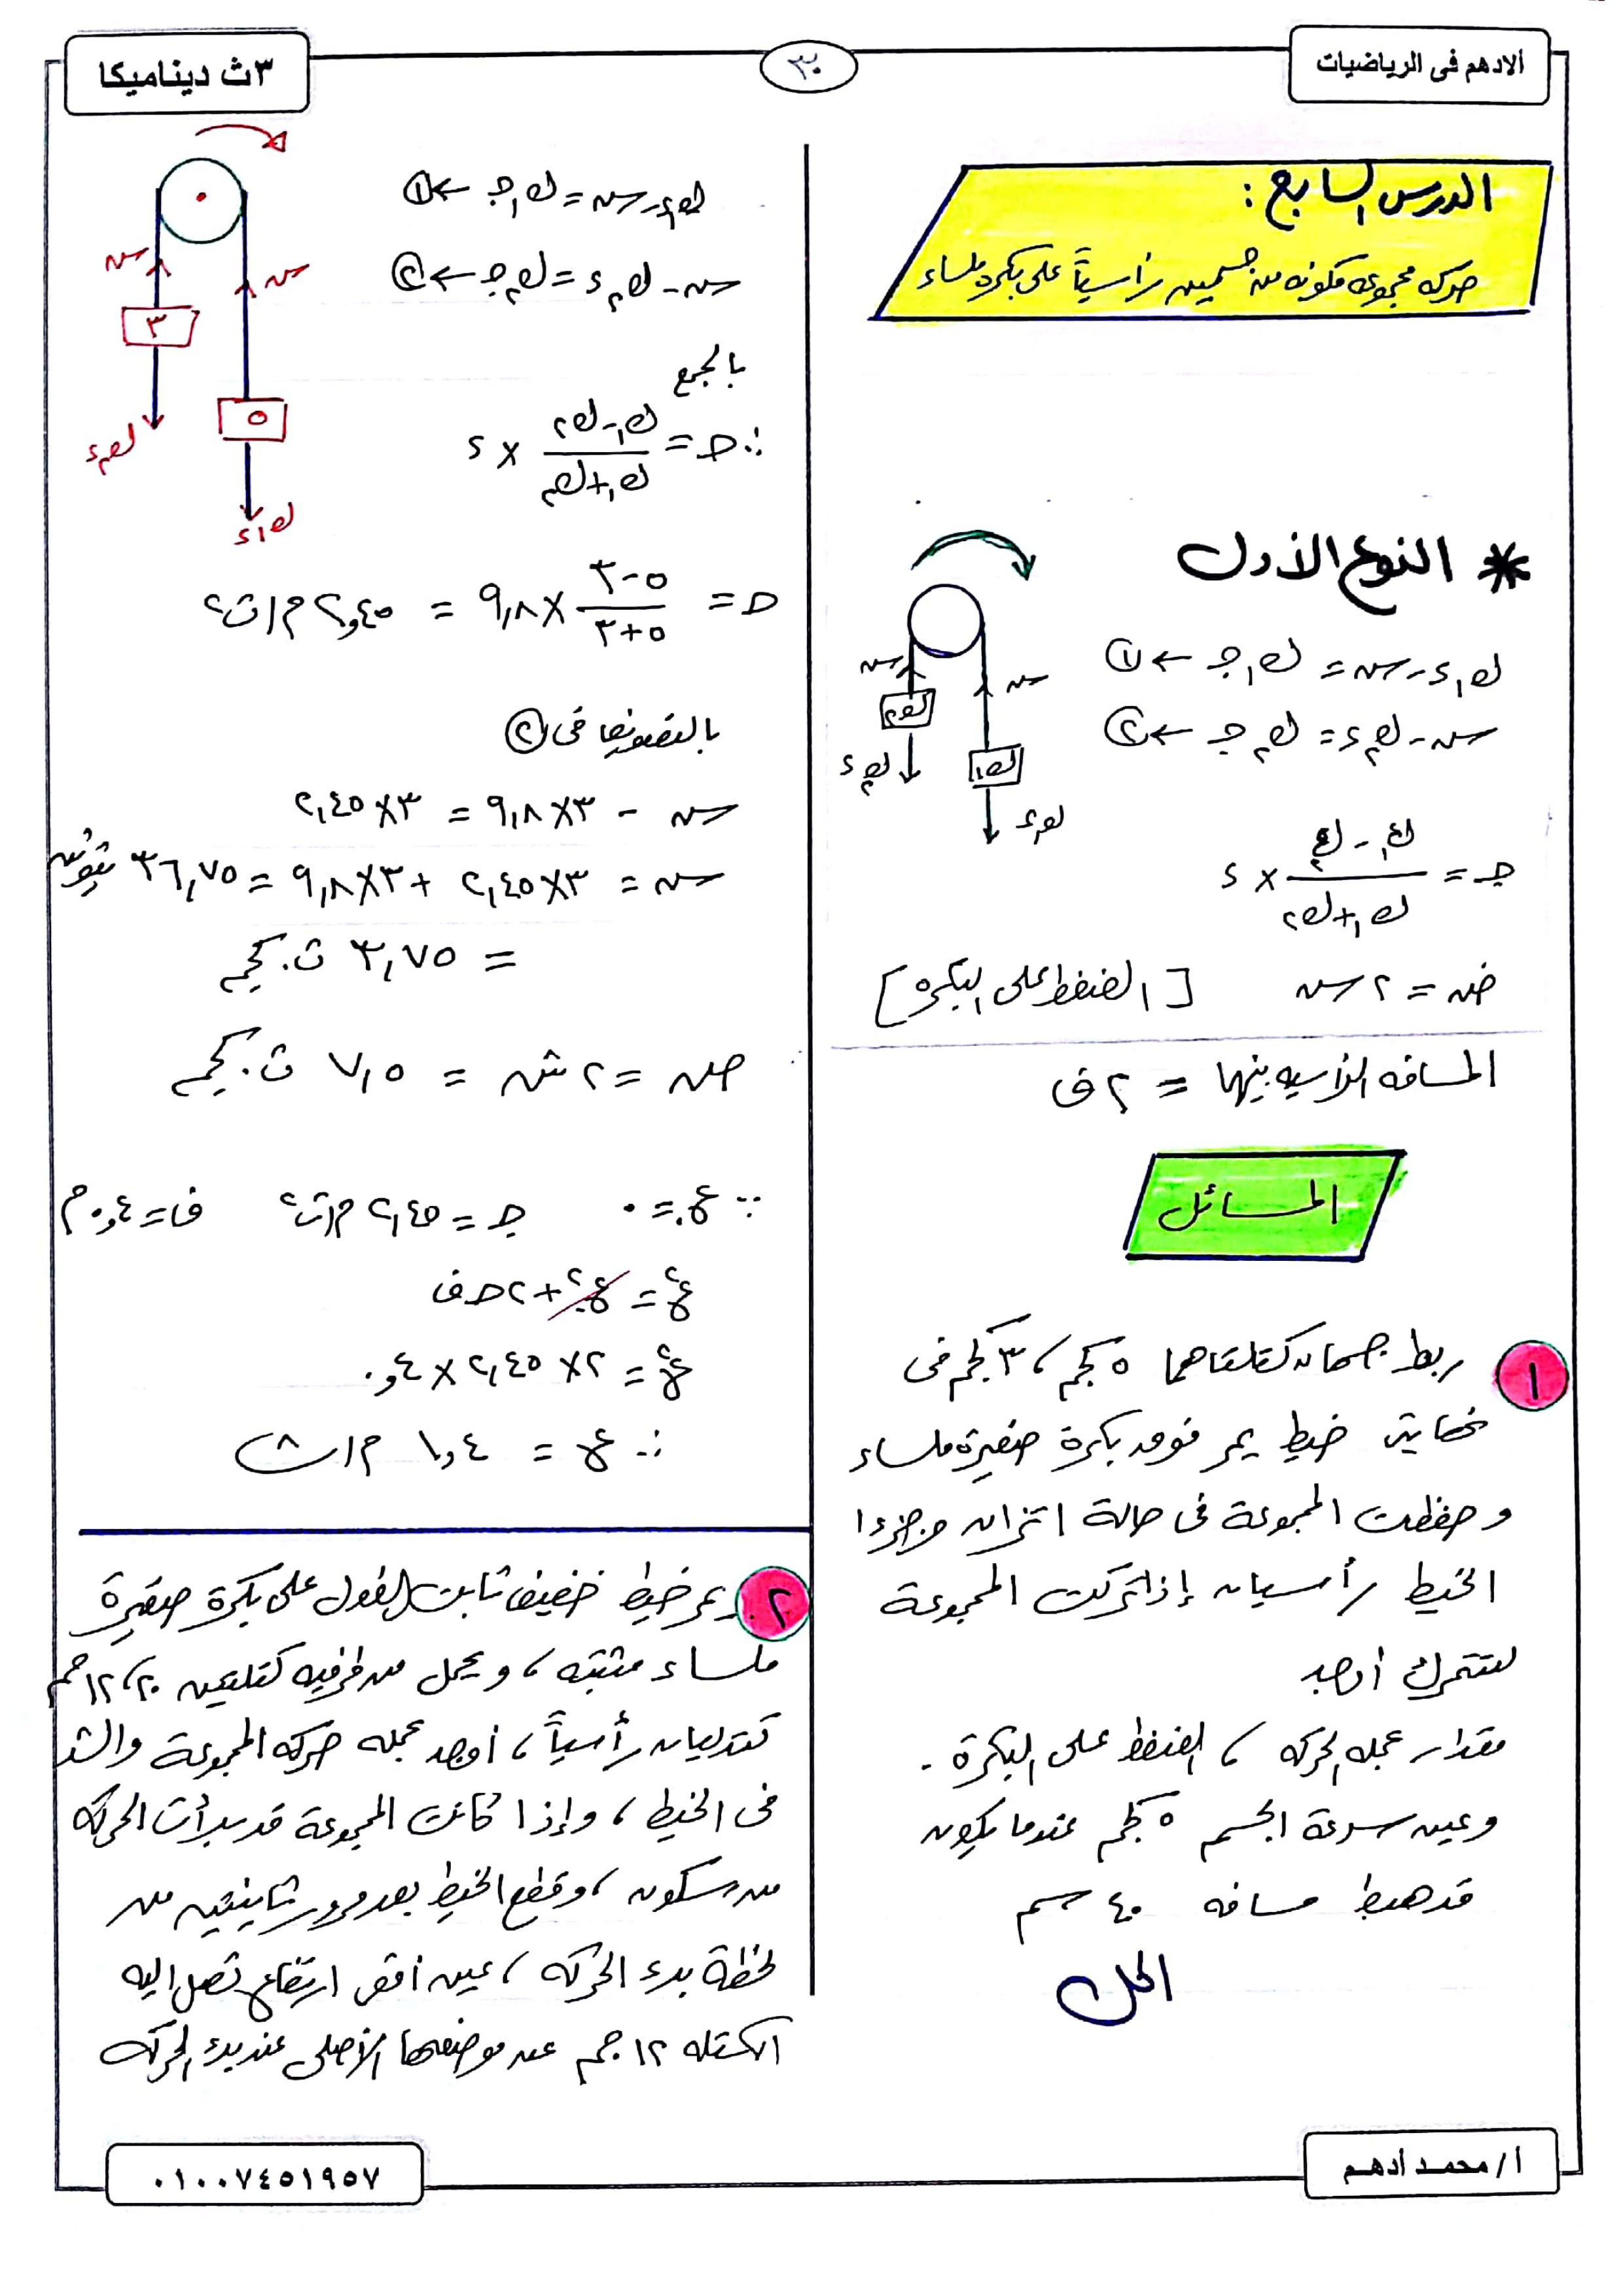 الادهم فى الرياضيات
٣٠
٣ث ديناميكا
الدرس السابع :
حركة مجموعة مكونه من جسمين رأسياً على بكره ملساء
* النوع الأول
ك١ء - ش = ك١ جـ ← ①
ش - ك٢ء = ك٢ جـ ← ②
جـ = (ك١ - ك٢) / (ك١ + ك٢) × ء
ش
ش
ك٢
ك١
ك٢ء
ك١ء
ض = ٢ ش [الضغط على البكره]
المسافه الرأسيه بينهما = ٢ ف
المسائل
١ ربط جسمان كتلتاهما ٥ كجم ، ٣ كجم فى
نهايتى خيط يمر فوق بكرة صغيرة ملساء
و حفظت المجموعة فى حالة اتزان و جزءا
الخيط رأسيان إذا تركت المجموعة
لتتحرك أوجد
مقدار عجله الحركه ، الضغط على البكرة .
وعين سرعة الجسم ٥ كجم عندما يكون
قد هبط مسافه ٤٠ سم
الحل
ش
ش
٣
٥
ك٢ء
ك١ء
ك١ء - ش = ك١ جـ ← ①
ش - ك٢ء = ك٢ جـ ← ②
بالجمع
∴ جـ = (ك١ - ك٢) / (ك١ + ك٢) × ء
جـ = (٥ - ٣) / (٥ + ٣) × ٩,٨ = ٢,٤٥ م/ث٢
بالتعويض فى ②
ش - ٣×٩,٨ = ٣×٢,٤٥
ش = ٣×٢,٤٥ + ٣×٩,٨ = ٣٦,٧٥ نيوتن
= ٣,٧٥ ث.كجم
ض = ٢ ش = ٧,٥ ث.كجم
∵ ع. = ٠ جـ = ٢,٤٥ م/ث٢ ف = ٠,٤ م
ع٢ = ع.٢ + ٢ جـ ف
ع٢ = ٢ × ٢,٤٥ × ٠,٤
∴ ع = ١,٤ م/ث
٢ يمر خيط خفيف ثابت الطول على بكرة صغيرة
ملساء مثبته ، و يحمل من طرفيه كتلتين ٢٠ ، ١٢ جم
تتدليان رأسياً ، أوجد عجله حركه المجموعة والشد
فى الخيط ، وإذا كانت المجموعة قد بدأت الحركه
من سكون ، وقطع الخيط بعد مرور ثانيتين من
لحظة بدء الحركه ، عين أقصى ارتفاع تصل اليه
الكتله ١٢ جم عن موضعها الأصلى عند بدء الحركه
أ / محمد أدهم
٠١٠٠٧٤٥١٩٥٧